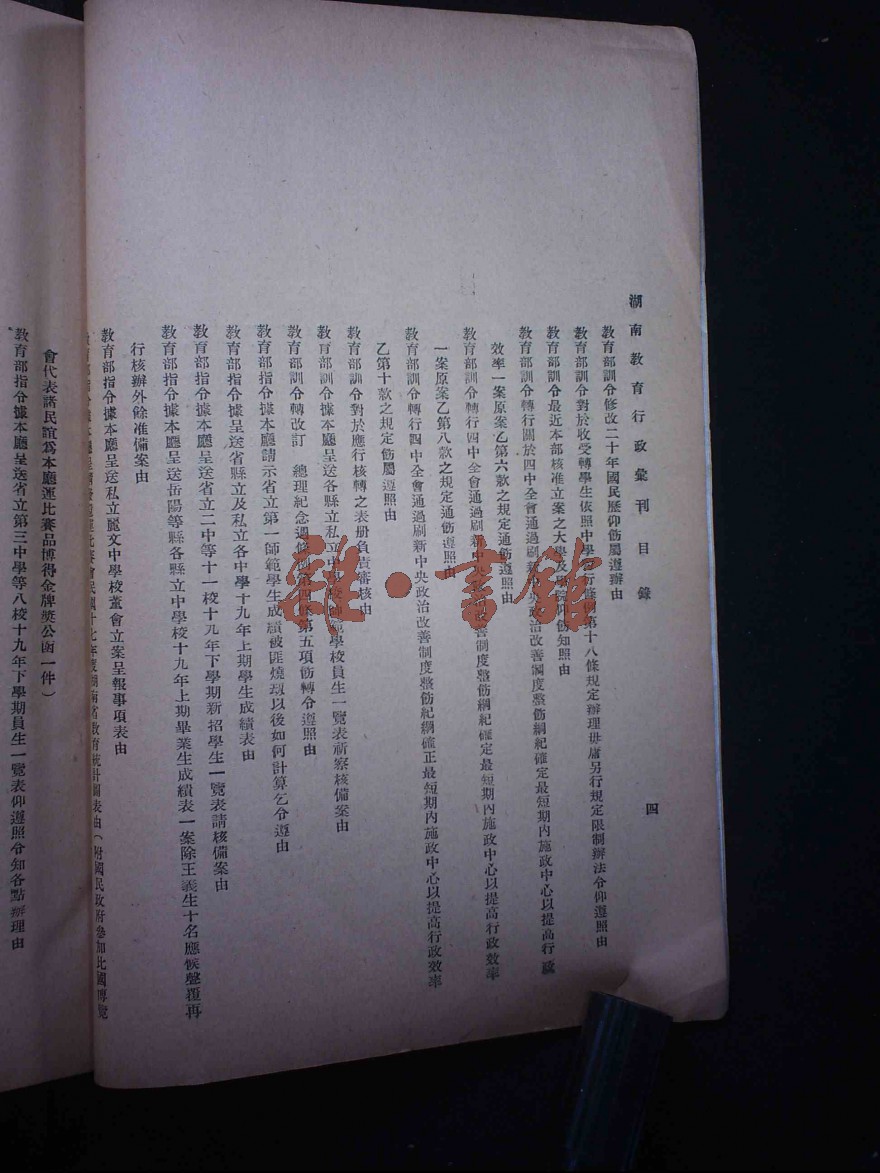 湖南教育行政彙刊目錄 四
教育部訓令修改二十年國民歷仰飭屬遵辦由
教育部訓令對於收受轉學生依照中學暫行條例第十八條規定辦理毋庸另行規定限制辦法令仰遵照由
教育部訓令最近本部核准立案之大學及學院仰飭知照由
教育部訓令轉行關於四中全會通過刷新中央政治改善制度整飭綱紀確定最短期內施政中心以提高行政
效率一案原案乙第六款之規定通飭遵照由
教育部訓令轉行四中全會通過刷新中央政治改善制度整飭綱紀確定最短期內施政中心以提高行政效率
一案原案乙第八款之規定通飭遵照由
教育部訓令轉行四中全會通過刷新中央政治改善制度整飭紀綱確正最短期內施政中心以提高行政效率
乙第十款之規定飭屬遵照由
教育部訓令對於應行核轉之表册負責審核由
教育部指令據本廳呈送各縣立私立中學校師範學校員生一覽表祈察核備案由
教育部訓令轉改訂 總理紀念週條例第四條第五項飭轉令遵照由
教育部指令據本廳請示省立第一師範學生成績被匪燒燬以後如何計算乞令遵由
教育部指令據呈送省縣立及私立各中學十九年上期學生成績表由
教育部指令據本廳呈送省立二中等十一校十九年下學期新招學生一覽表請核備案由
教育部指令據本廳呈送岳陽等縣各縣立中學校十九年上期畢業生成績表一案除王義生十名應候整理再
行核辦外餘准備案由
教育部指令據本廳呈送私立麗文中學校董會立案呈報事項表由
教育部指令據本廳呈 比賽會民國十七年度湖南省教育統計圖表由（附國民政府參加比國博覽
會代表諸民誼爲本廳運比賽品博得金牌獎公函一件）
教育部指令據本廳呈送省立第三中學等八校十九年下學期員生一覽表仰遵照令知各點辦理由
雜·書館